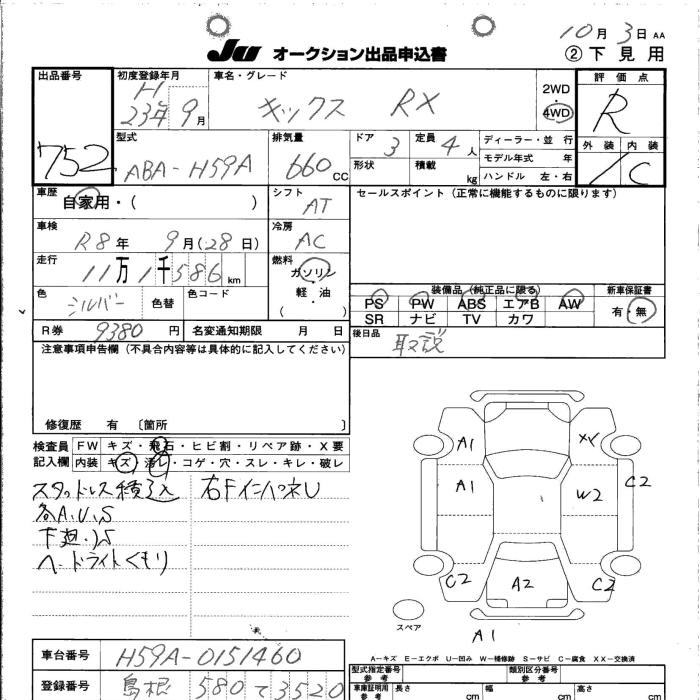 10月 3日 AA
JU オークション出品申込書 ②下見用
出品番号 752
初度登録年月 H 23年 9月
車名・グレード キックス RX
2WD・4WD
評価点 R
外装 内装 C
型式 ABA-H59A
排気量 660 CC
ドア 3
定員 4 人
形状
積載 kg
ディーラー・並行
モデル年式 年
ハンドル 左・右
車歴 自家用・( )
シフト AT
セールスポイント(正常に機能するものに限ります)
車検 R8年 9月(28日)
冷房 AC
走行 11万1千586km
燃料 ガソリン 軽・油 ( )
色 シルバー 色替
色コード
装備品(純正品に限る) 新車保証書
PS PW ABS エアB AW 有・無
SR ナビ TV カワ
R券 9380円
名変通知期限 月 日
後日品 取説
注意事項申告欄(不具合内容等は具体的に記入してください)
修復歴 有 〔箇所 〕
検査員 FW キズ・飛石・ヒビ割・リペア跡・X要
記入欄 内装 キズ・汚レ・コゲ・穴・スレ・キレ・破レ
スタッドレス積込
右Fインパネ
各A.U.S
下廻りS
ヘッドライトくもり
A1
A1
W2
C2
C2
A2
C2
A1
スペア
A-キズ E-エクボ U-凹み W-補修跡 S-サビ C-腐食 XX-交換済
車台番号 H59A-0151460
登録番号 島根 580 て 3520
型式指定番号 参考
類別区分番号 参考
車庫証明用 参考 長さ cm 幅 cm 高さ cm